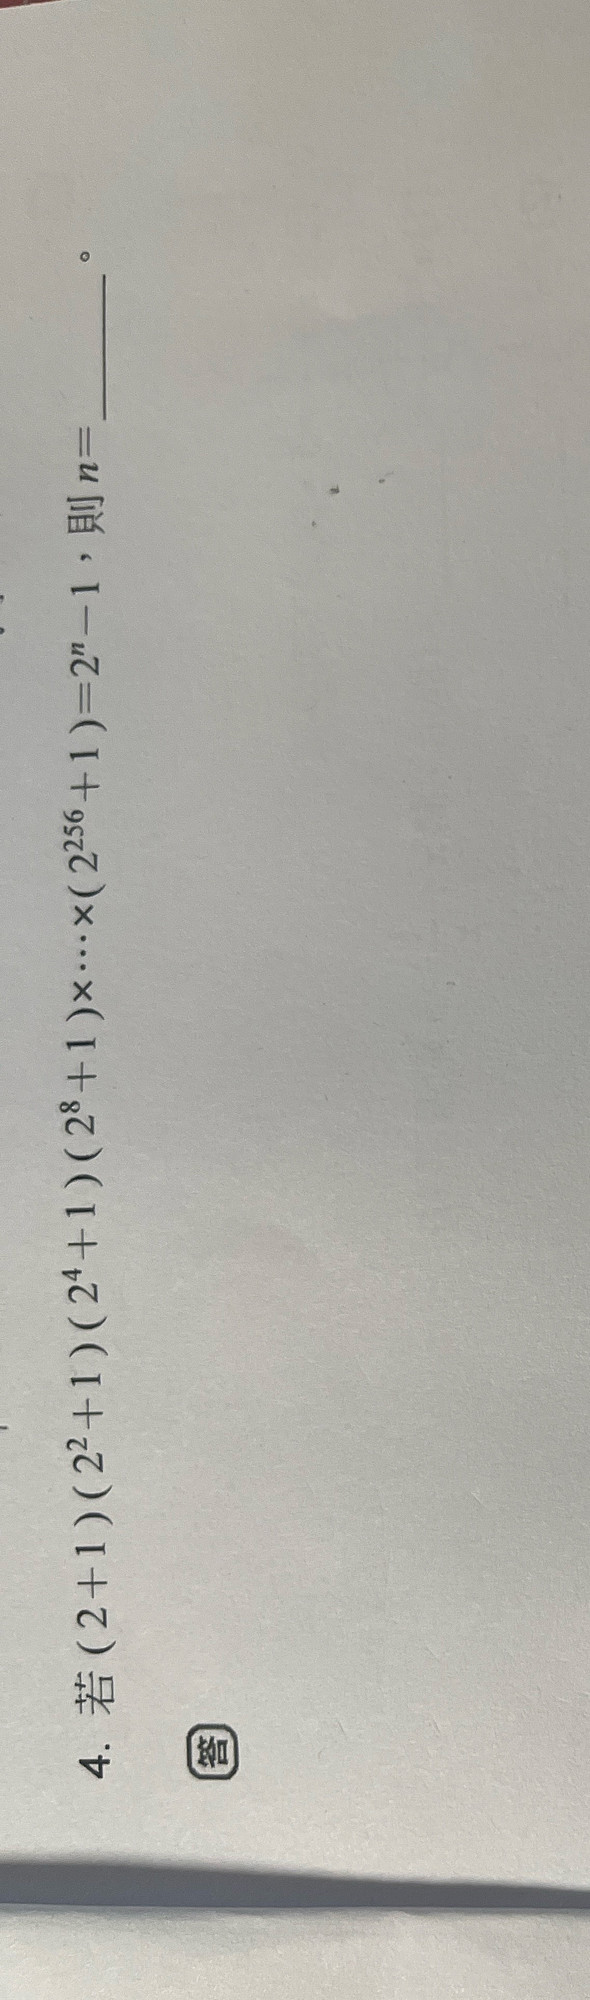 4. 若(2+1)(2²+1)(2⁴+1)(2⁸+1)×⋯×(2²⁵⁶+1)=2ⁿ−1，則n=______。
答